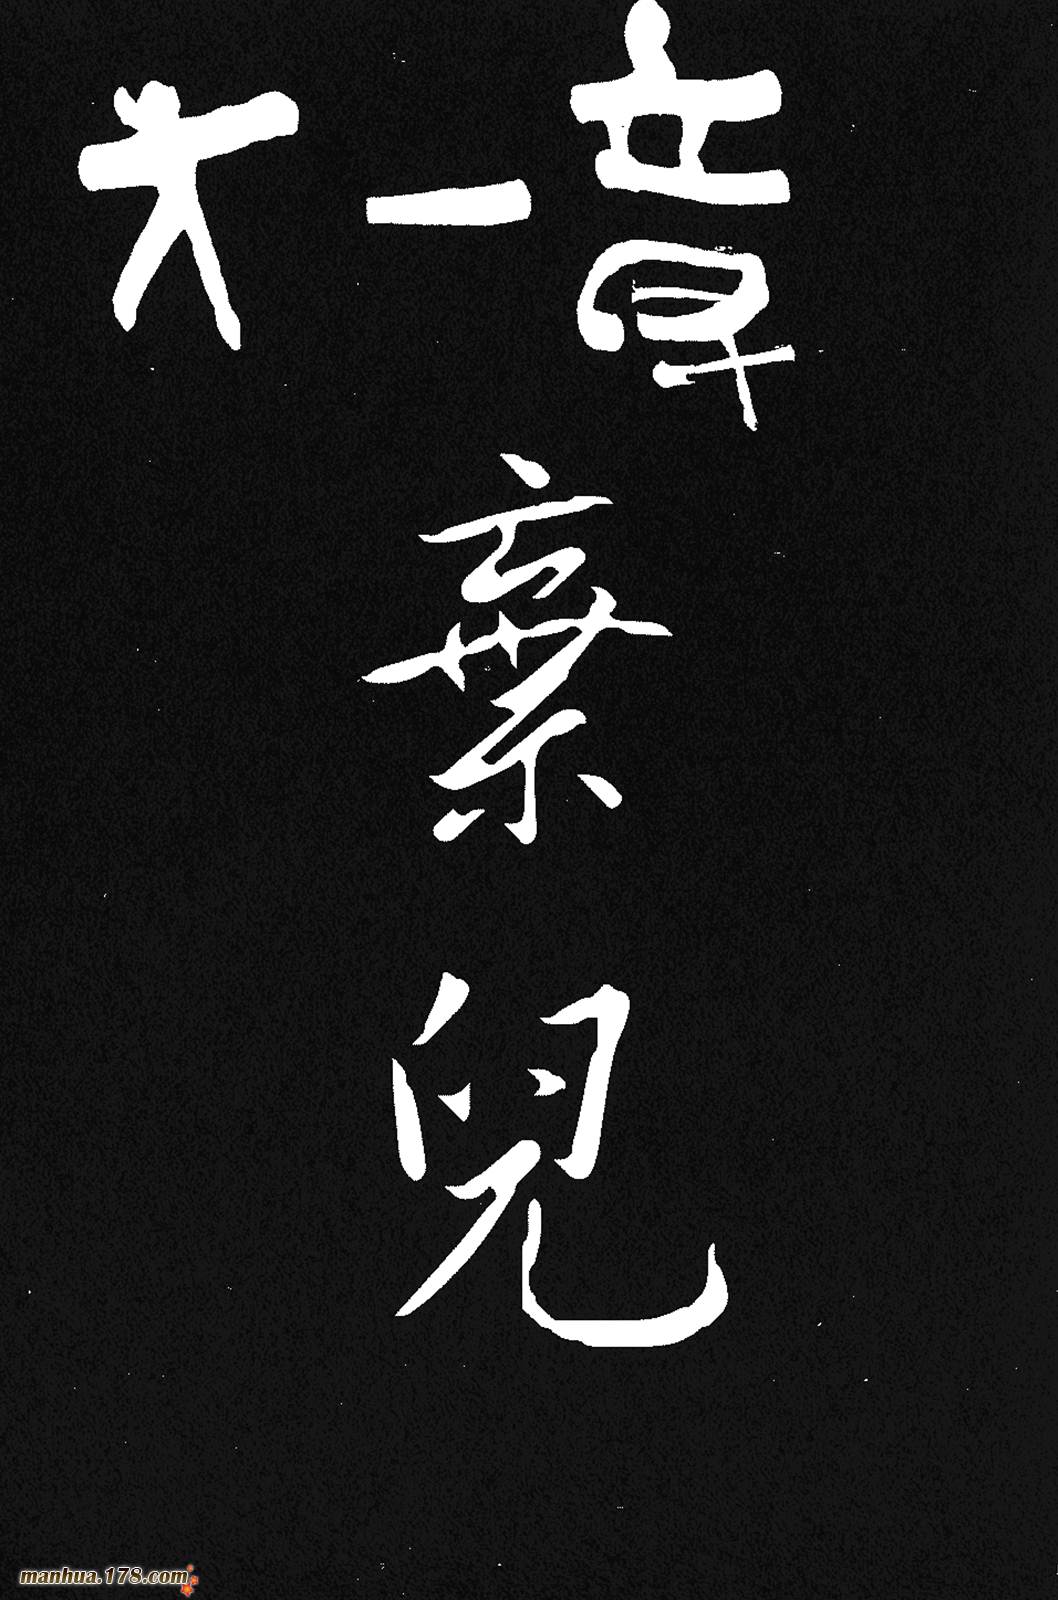 大一章
棄兒
manhua.178.com